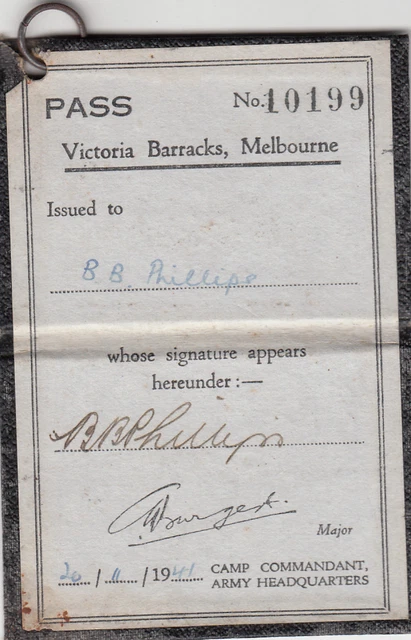 PASS No. 10199
Victoria Barracks, Melbourne
Issued to
B B. Phillips
whose signature appears
hereunder :—
BBPhillips
Major
20 / 11 / 1941 CAMP COMMANDANT,
ARMY HEADQUARTERS